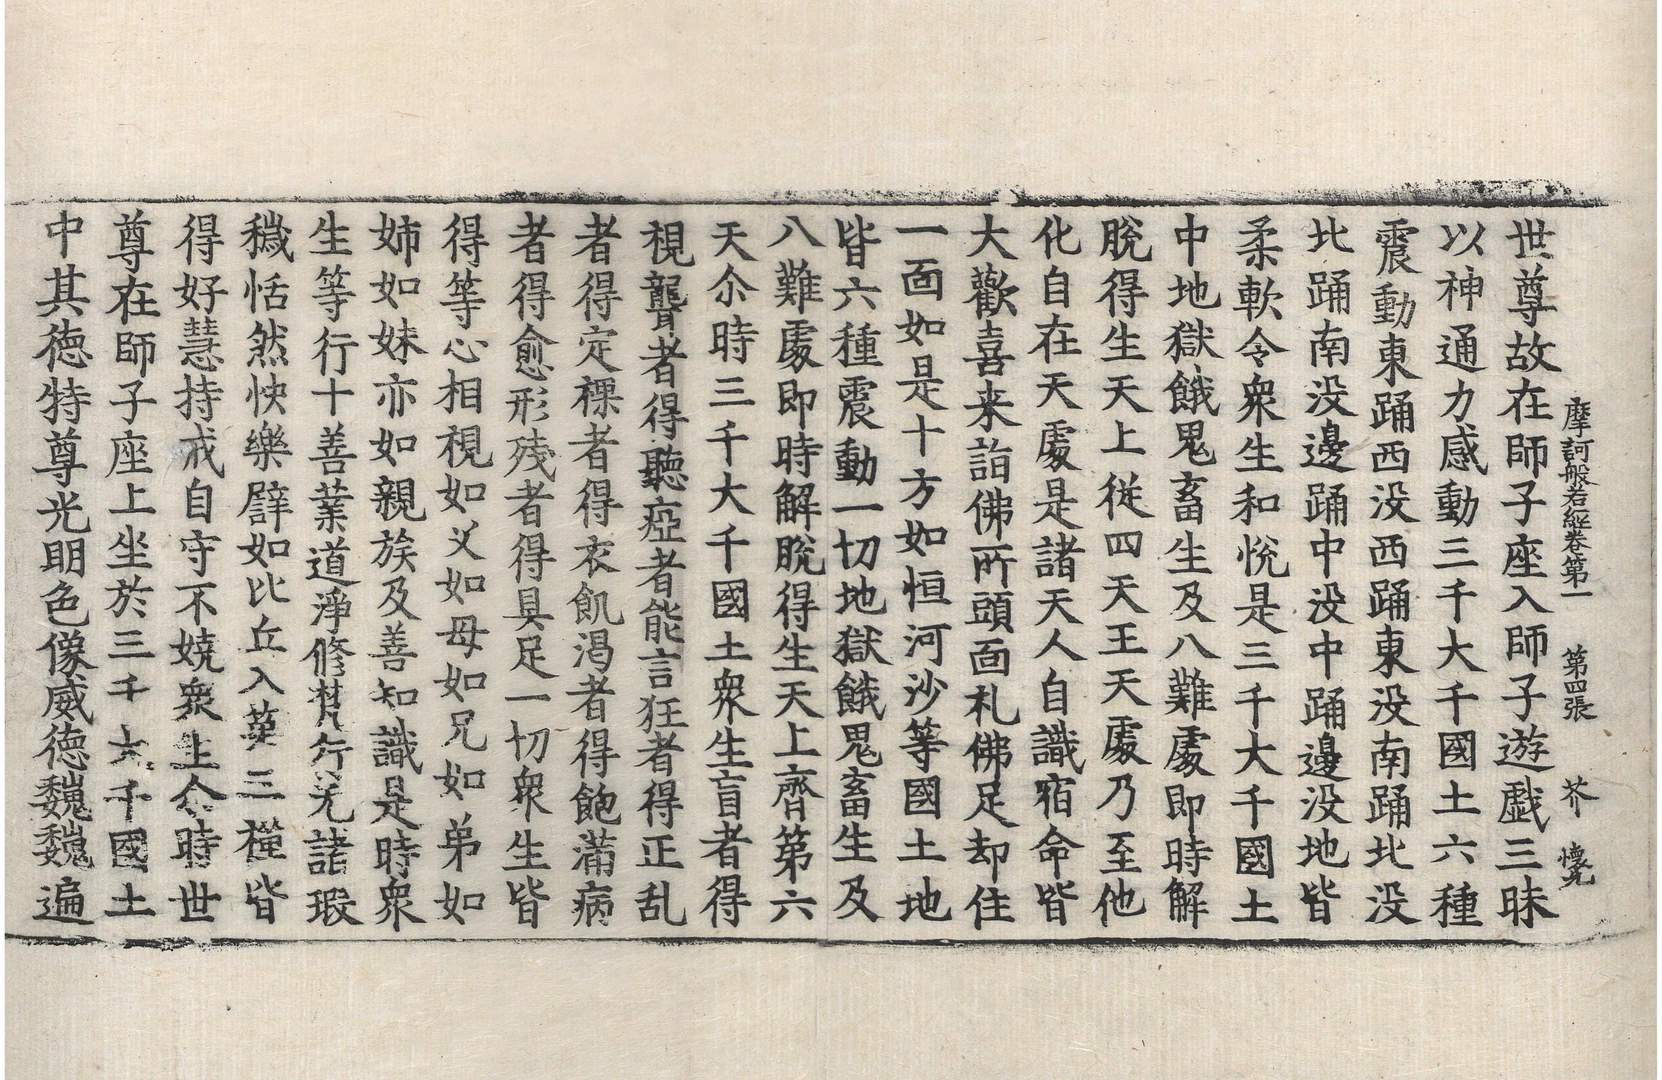 摩訶般若經卷第一　第四張　芥　懷光
世尊故在師子座入師子遊戲三昧
以神通力感動三千大千國土六種
震動東踊西没西踊東没南踊北没
北踊南没邊踊中没中踊邊没地皆
柔軟令衆生和悅是三千大千國土
中地獄餓鬼畜生及八難處即時解
脫得生天上從四天王天處乃至他
化自在天處是諸天人自識宿命皆
大歡喜来詣佛所頭面礼佛足却住
一面如是十方如恒河沙等國土地
皆六種震動一切地獄餓鬼畜生及
八難處即時解脫得生天上齊第六
天尒時三千大千國土衆生盲者得
視聾者得聽瘂者能言狂者得正乱
者得定裸者得衣飢渴者得飽滿病
者得愈形残者得具足一切衆生皆
得等心相視如父如母如兄如弟如
姉如妹亦如親族及善知識是時衆
生等行十善業道淨修梵行无諸瑕
穢恬然快樂譬如比丘入第三禪皆
得好慧持戒自守不嬈衆生尒時世
尊在師子座上坐於三千大千國土
中其德特尊光明色像威德巍巍遍